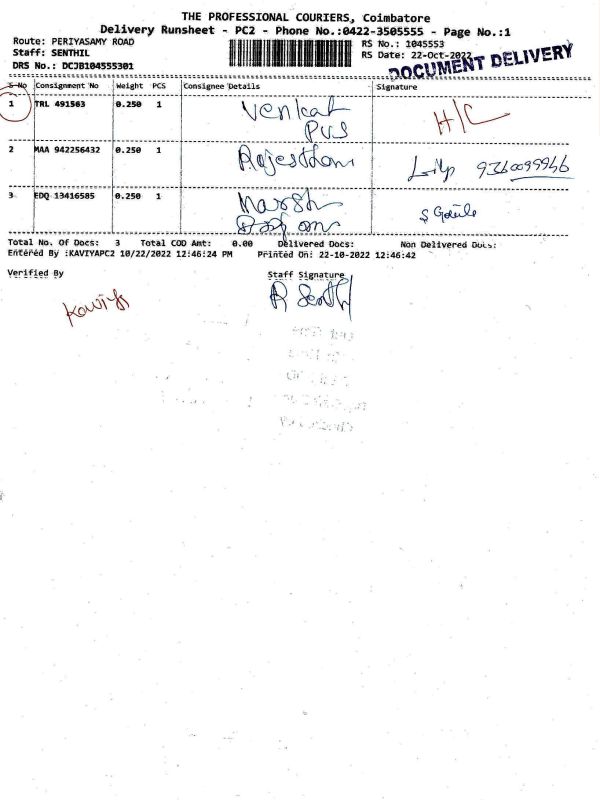 THE PROFESSIONAL COURIERS, Coimbatore
Delivery Runsheet - PC2 - Phone No.:0422-3505555 - Page No.:1
Route: PERIYASAMY ROAD
RS No.: 1045553
Staff: SENTHIL
RS Date: 22-Oct-2022
DRS No.: DCJB104555301
DOCUMENT DELIVERY
S No Consignment No Weight PCS Consignee Details Signature
1 TRL 491563 0.250 1 Venkat H/C
PVS
2 MAA 942256432 0.250 1
3 EDQ 13416585 0.250 1 Harsh
Total No. Of Docs: 3 Total COD Amt: 0.00 Delivered Docs: Non Delivered Docs:
Entered By :KAVIYAPC2 10/22/2022 12:46:24 PM Printed On: 22-10-2022 12:46:42
Verified By Staff Signature
Kaviya R Senthil